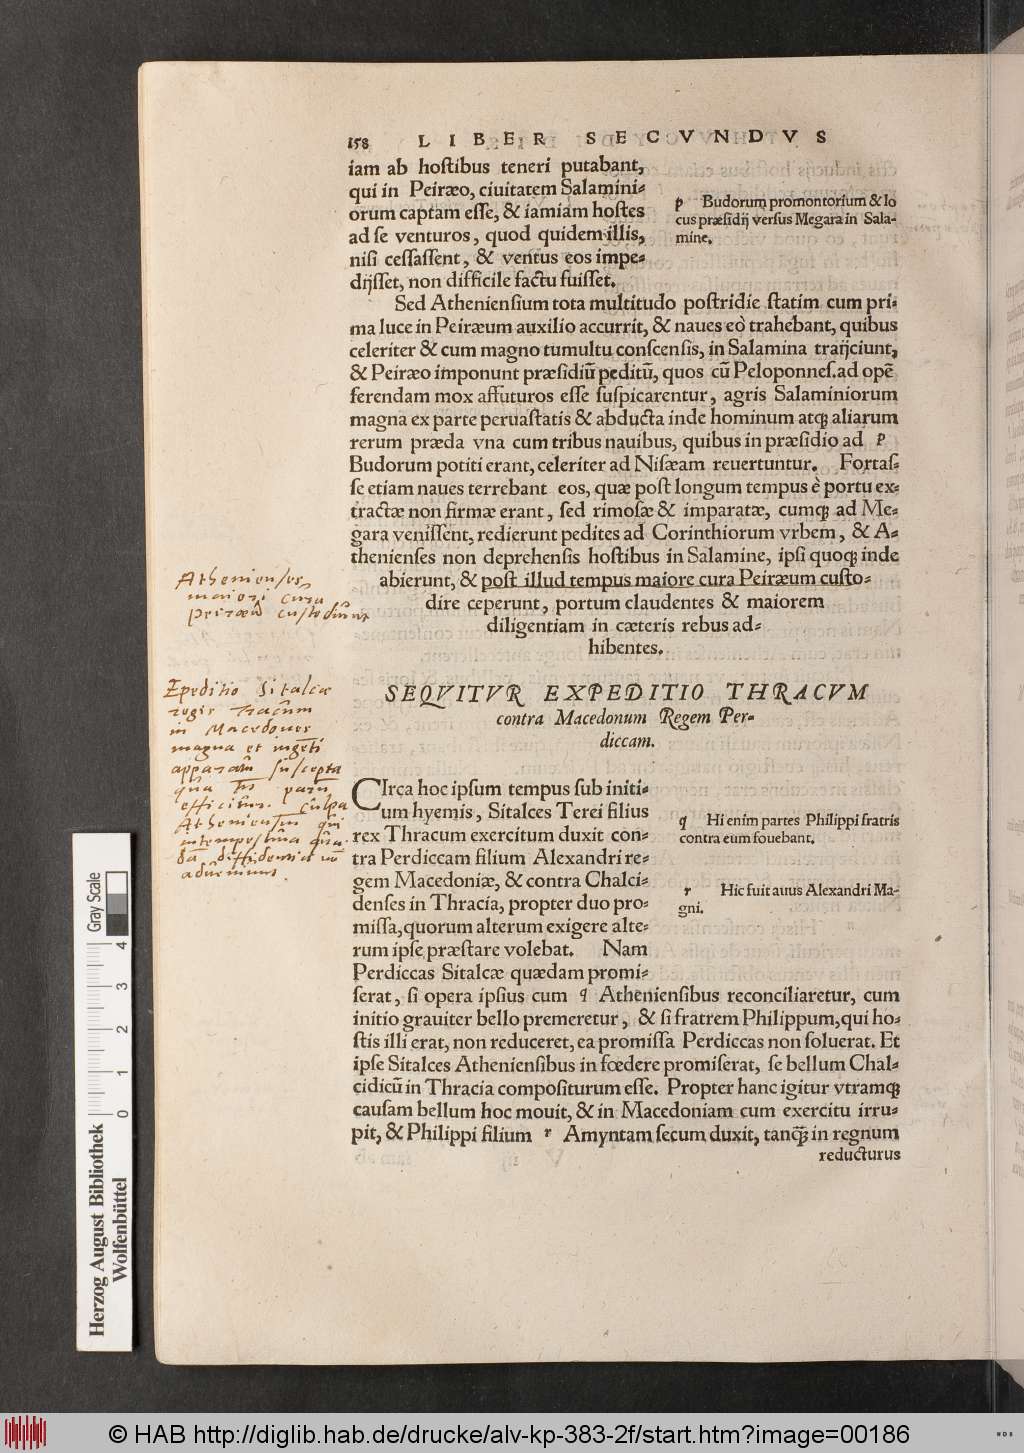 158 LIBER SECVNDVS
iam ab hostibus teneri putabant,
qui in Peiræo, ciuitatem Salamini-
orum captam esse, & iamiam hostes
ad se venturos, quod quidem illis,
nisi cessassent, & ventus eos impe-
dijsset, non difficile factu fuisset.
p Budorum promontorium & lo
cus præsidij versus Megara in Sala-
mine.
Sed Atheniensium tota multitudo postridie statim cum pri-
ma luce in Peiræum auxilio accurrit, & naues eò trahebant, quibus
celeriter & cum magno tumultu conscensis, in Salamina traijciunt,
& Peiræo imponunt præsidiũ peditũ, quos cũ Peloponnes. ad opẽ
ferendam mox affuturos esse suspicarentur, agris Salaminiorum
magna ex parte peruastatis & abducta inde hominum atq; aliarum
rerum præda vna cum tribus nauibus, quibus in præsidio ad p
Budorum potiti erant, celeriter ad Nisæam reuertuntur. Fortas-
se etiam naues terrebant eos, quæ post longum tempus è portu ex-
tractæ non firmæ erant, sed rimosæ & imparatæ, cumq; ad Me-
gara venissent, redierunt pedites ad Corinthiorum vrbem, & A-
thenienses non deprehensis hostibus in Salamine, ipsi quoq; inde
abierunt, & post illud tempus maiore cura Peiræum custo-
dire ceperunt, portum claudentes & maiorem
diligentiam in cæteris rebus ad-
hibentes.
Athenienses
maiori cura
peiræũ custodiũnt
SEQVITVR EXPEDITIO THRACVM
contra Macedonum Regem Per-
diccam.
Expeditio Sitalcæ
regis Tracũm
in Macedones
magna et ingẽti
apparatũ sũscepta
qũa tñ parũ
efficitũr. cũlpa
Atheniensiũ qũi
intempestiũa qũa
dã diffidentia nõ
adũeniũnt.
CIrca hoc ipsum tempus sub initi-
um hyemis, Sitalces Terei filius
rex Thracum exercitum duxit con-
tra Perdiccam filium Alexandri re-
gem Macedoniæ, & contra Chalci-
denses in Thracia, propter duo pro-
missa, quorum alterum exigere alte-
rum ipse præstare volebat. Nam
Perdiccas Sitalcæ quædam promi-
q Hi enim partes Philippi fratris
contra eum fouebant.
r Hic fuit auus Alexandri Ma-
gni.
serat, si opera ipsius cum q Atheniensibus reconciliaretur, cum
initio grauiter bello premeretur, & si fratrem Philippum, qui ho-
stis illi erat, non reduceret, ea promissa Perdiccas non soluerat. Et
ipse Sitalces Atheniensibus in fœdere promiserat, se bellum Chal-
cidicũ in Thracia compositurum esse. Propter hanc igitur vtramq;
causam bellum hoc mouit, & in Macedoniam cum exercitu irru-
pit, & Philippi filium r Amyntam secum duxit, tanq̃ in regnum
reducturus
Gray Scale
0 1 2 3 4
Herzog August Bibliothek
Wolfenbüttel
© HAB http://diglib.hab.de/drucke/alv-kp-383-2f/start.htm?image=00186